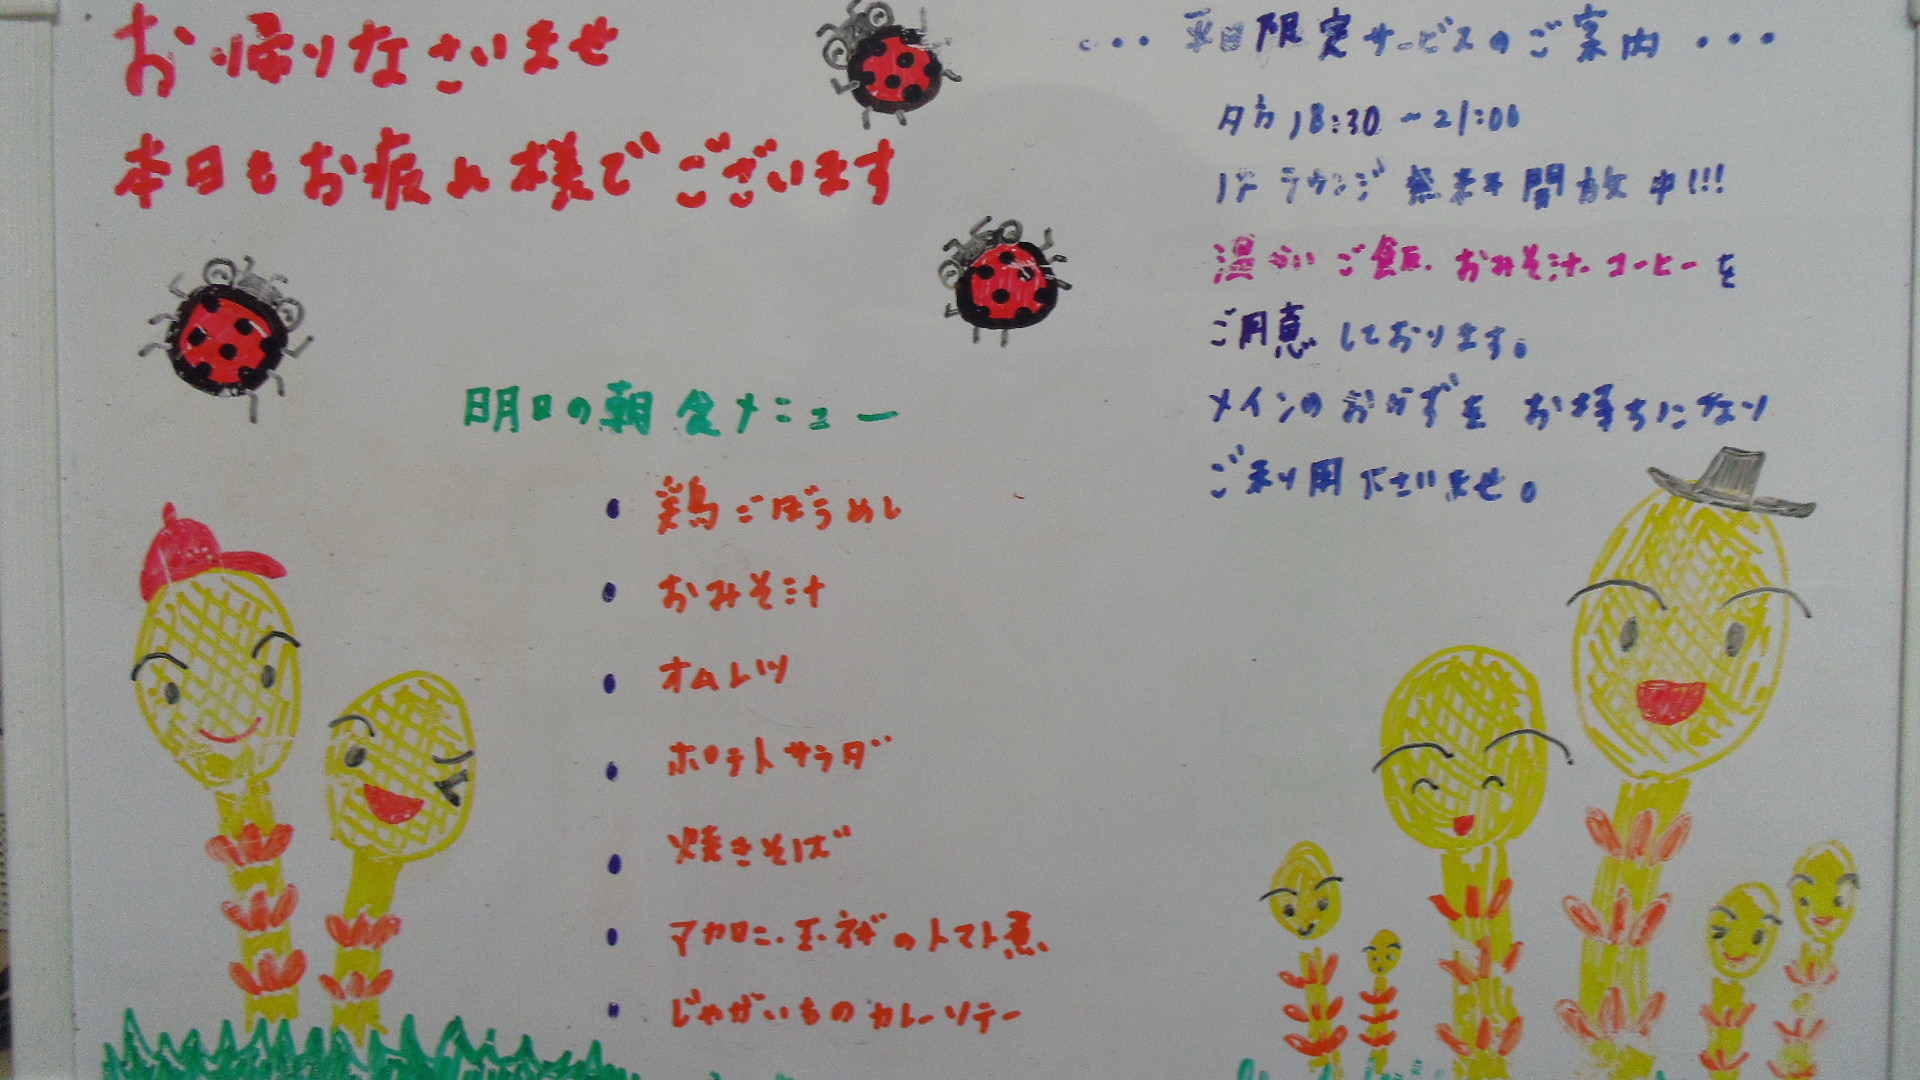 お帰りなさいませ
本日もお疲れ様でございます
明日の朝食メニュー
・鶏ごぼうめし
・おみそ汁
・オムレツ
・ポテトサラダ
・焼きそば
・マカロニ・玉ネギのトマト煮
・じゃがいものカレーソテー
・・・平日限定サービスのご案内・・・
夕方18:30~21:00
1Fラウンジ無料開放中!!!
温かいご飯・おみそ汁・コーヒーを
ご用意しております。
メインのおかずをお持ちになり
ご利用下さいませ。